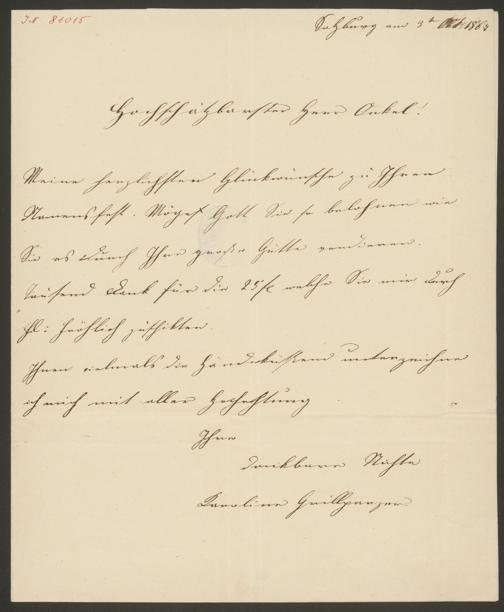 J.N 81015
Salzburg am 3t Okt. 186
Hochschätzbarster Herr Onkel!
Meine herzlichsten Glückwünsche zu Ihren
Namensfest. Möge Gott Sie so belohnen wie
Sie es durch Ihre große Gütte verdienen.
Tausend Dank für die 25 welche Sie mir durch
Frl: Fröhlich zuschikten.
Ihnen vielmals die Hände küssend unterzeichne
ich mich mit aller Hochachtung
Ihre
dankbare Nichte
Karoline Grillparzer